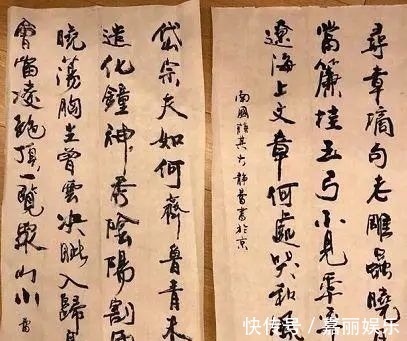 尋章摘句老雕蟲曉月
當簾挂玉弓不見年年
遼海上文章何處哭秋風
南國 其六 静 書於京
岱宗夫如何齊魯青未
造化鐘神秀陰陽割昏
曉蕩胸生曾雲决眦入歸鳥
會當凌絶頂一覽衆山小
快传号 / 嘉丽娱乐